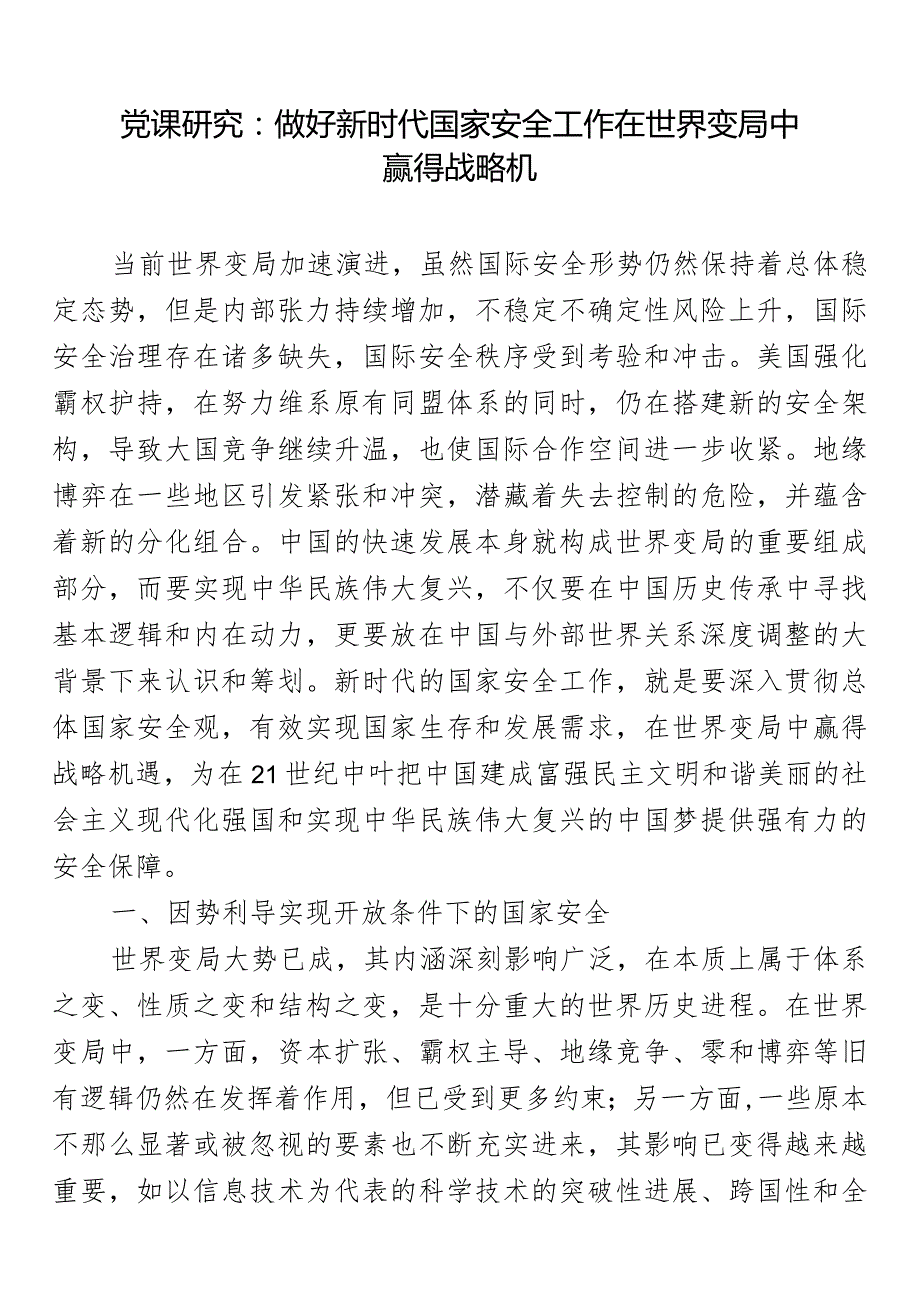 党课研究：做好新时代国家安全工作在世界变局中
赢得战略机
当前世界变局加速演进，虽然国际安全形势仍然保持着总体稳
定态势，但是内部张力持续增加，不稳定不确定性风险上升，国际
安全治理存在诸多缺失，国际安全秩序受到考验和冲击。美国强化
霸权护持，在努力维系原有同盟体系的同时，仍在搭建新的安全架
构，导致大国竞争继续升温，也使国际合作空间进一步收紧。地缘
博弈在一些地区引发紧张和冲突，潜藏着失去控制的危险，并蕴含
着新的分化组合。中国的快速发展本身就构成世界变局的重要组成
部分，而要实现中华民族伟大复兴，不仅要在中国历史传承中寻找
基本逻辑和内在动力，更要放在中国与外部世界关系深度调整的大
背景下来认识和筹划。新时代的国家安全工作，就是要深入贯彻总
体国家安全观，有效实现国家生存和发展需求，在世界变局中赢得
战略机遇，为在21世纪中叶把中国建成富强民主文明和谐美丽的社
会主义现代化强国和实现中华民族伟大复兴的中国梦提供强有力的
安全保障。
一、因势利导实现开放条件下的国家安全
世界变局大势已成，其内涵深刻影响广泛，在本质上属于体系
之变、性质之变和结构之变，是十分重大的世界历史进程。在世界
变局中，一方面，资本扩张、霸权主导、地缘竞争、零和博弈等旧
有逻辑仍然在发挥着作用，但已受到更多约束；另一方面,一些原本
不那么显著或被忽视的要素也不断充实进来，其影响已变得越来越
重要，如以信息技术为代表的科学技术的突破性进展、跨国性和全